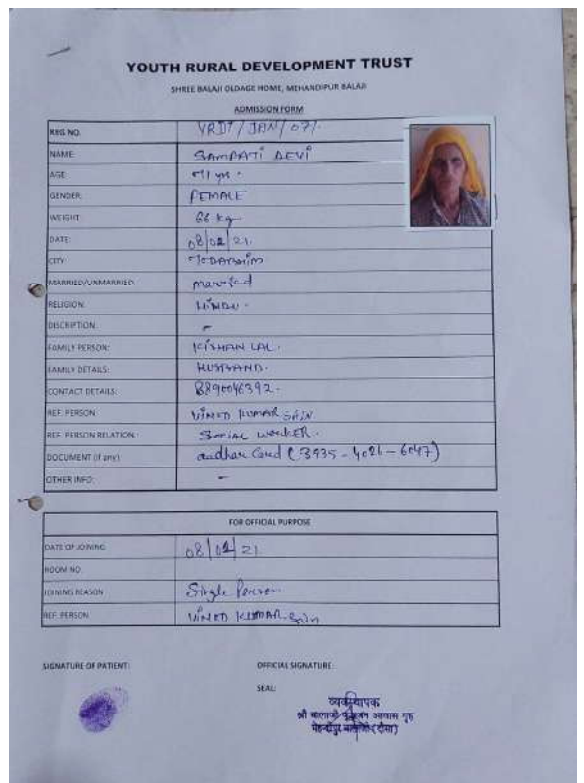 YOUTH RURAL DEVELOPMENT TRUST
SHREE BALAJI OLDAGE HOME, MEHANDIPUR BALAJI
ADMISSION FORM
REG NO. YRDT/JAN/07/.
NAME: SAMPATI DEVI
AGE: 71 yrs.
GENDER: FEMALE
WEIGHT: 66 kg
DATE: 08/02/21.
CITY:
MARRIED/UNMARRIED: married
RELIGION: HINDU.
DISCRIPTION: -
FAMILY PERSON: KISHAN LAL.
FAMILY DETAILS: HUSBAND.
CONTACT DETAILS: 8890046392.
REF. PERSON: VINOD KUMAR SAIN
REF. PERSON RELATION: Social WORKER.
DOCUMENT (if any): aadhar Card (3935-4026-6047)
OTHER INFO: -
FOR OFFICIAL PURPOSE
DATE OF JOINING: 08/02/21
ROOM NO
JOINING REASON Single Person
REF. PERSON VINOD KUMAR Sain
SIGNATURE OF PATIENT: OFFICIAL SIGNATURE:
SEAL:
व्यवस्थापक
श्री बालाजी आवास गृह
मेहन्दीपुर बालाजी (दौसा)